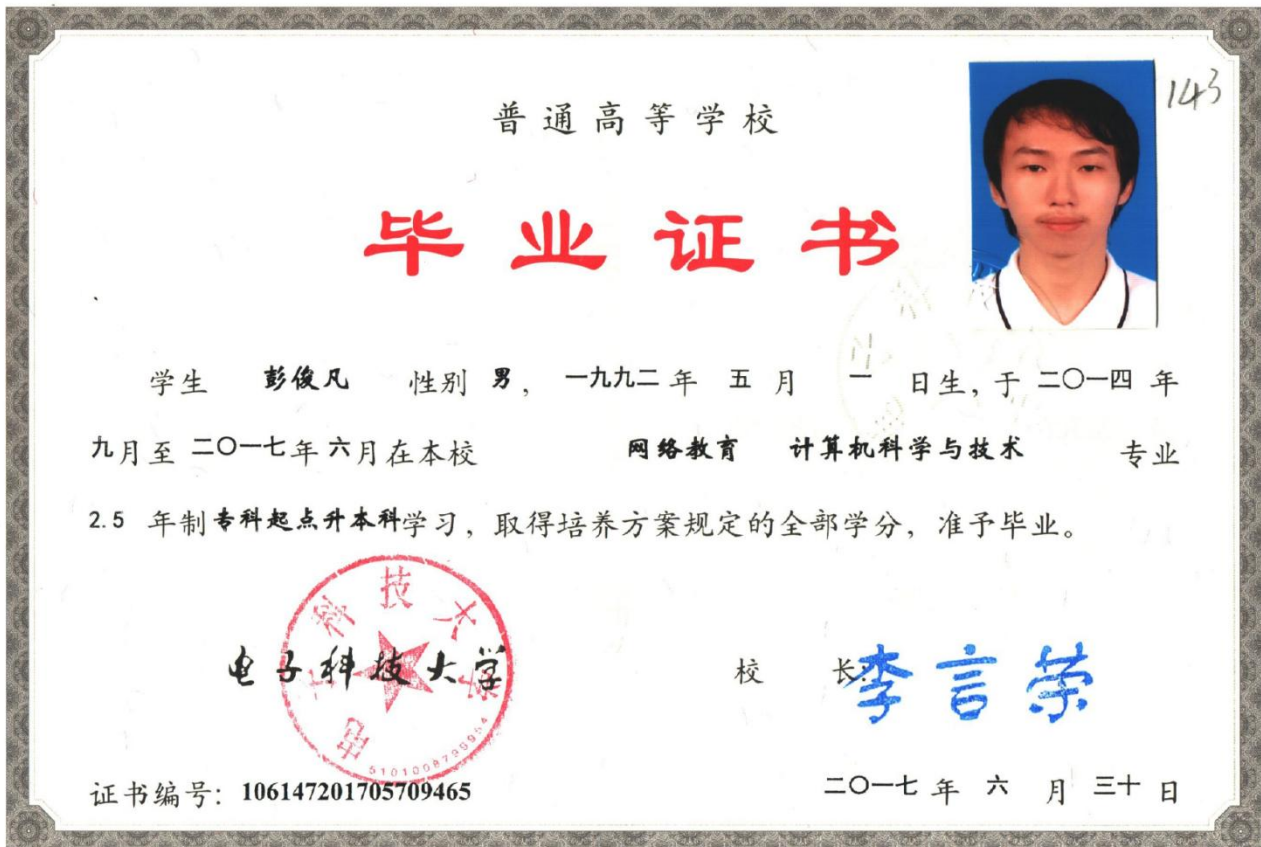 143
普通高等学校
毕业证书
学生 彭俊凡 性别 男， 一九九二 年 五 月 一 日生，于 二〇一四 年
九月至 二〇一七年 六月在本校 网络教育 计算机科学与技术 专业
2.5 年制专科起点升本科学习，取得培养方案规定的全部学分，准予毕业。
电子科技大学
电子科技大学
5101008799954
校 长：李言荣
证书编号：106147201705709465
二〇一七 年 六 月 三十 日